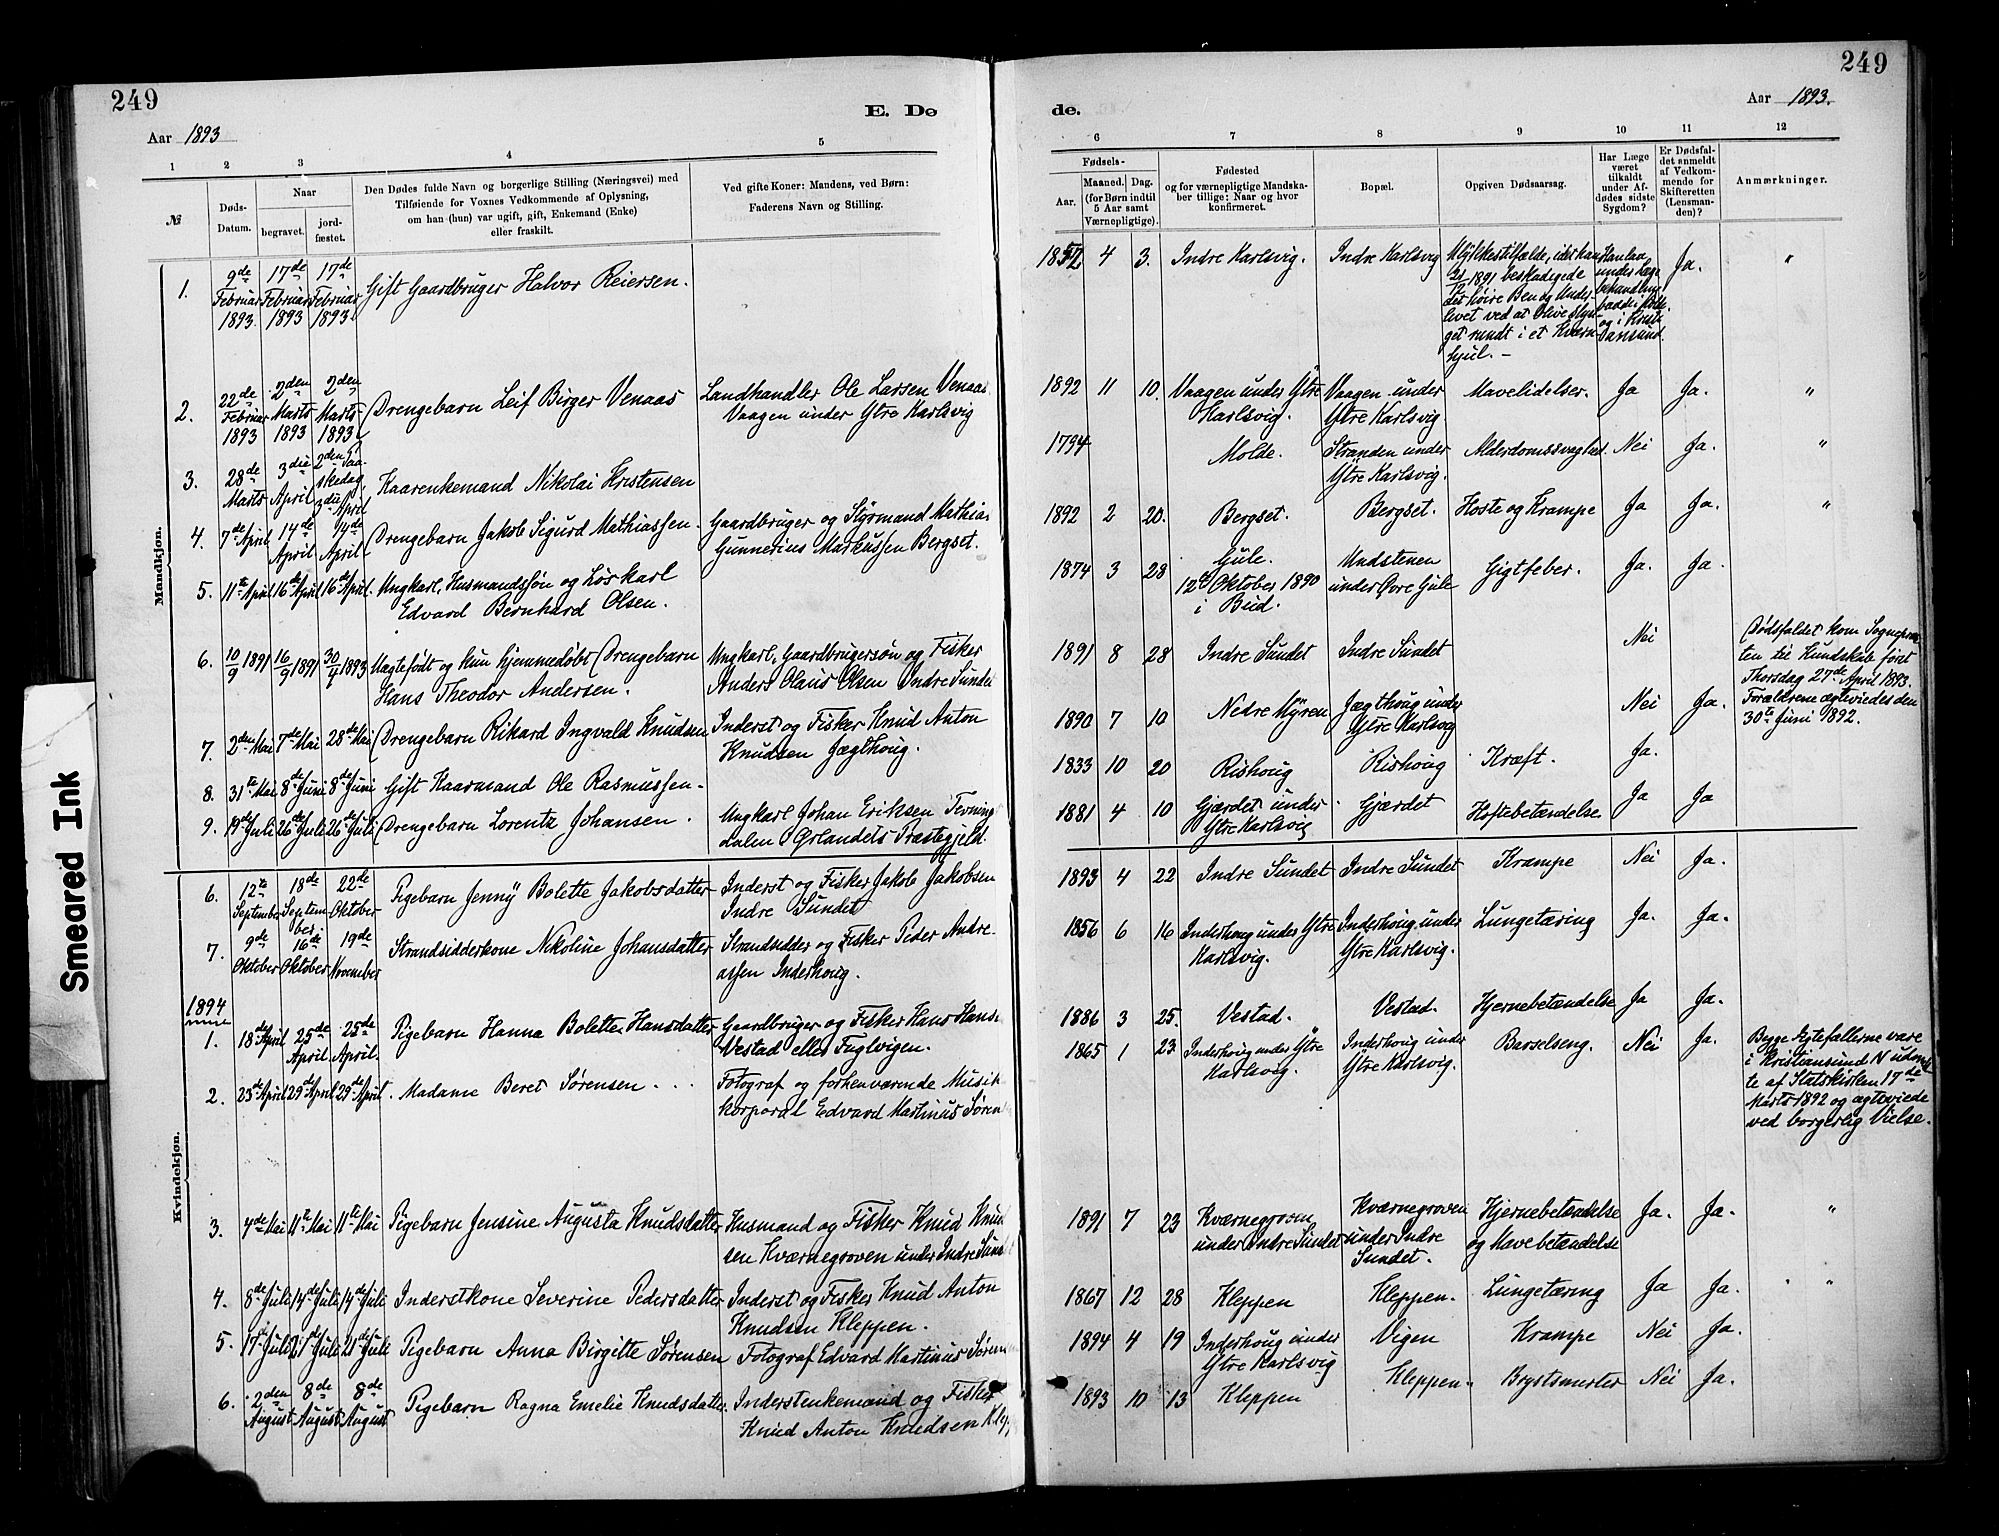 249
E. Dø
Aar 1893
1 2 3 4 5
№
Døds-Datum.
Naar
begravet.
jord-fæstet.
Den Dødes fulde Navn og borgerlige Stilling (Næringsvei) med
Tilføiende for Voxnes Vedkommende af Oplysning,
om han (hun) var ugift, gift, Enkemand (Enke)
eller fraskilt.
Ved gifte Koner: Mandens, ved Børn:
Faderens Navn og Stilling.
Mandkjøn.
1. 9de Februar 1893. 17de Februar 1893 17de Februar 1893. Gift Gaardbruger Halvor Reiersen.
2. 22de Februar 1893 2den Marts 1893 2den Marts 1893 Drengebarn Leif Birger Venaas Landhandler Ole Larsen Venaas
Vaagen under Ytre Karlsvig
3. 28de Marts 3die April 2den Paaskedag, 3die April Kaarenkemand Nikolai Kristensen
4. 7de April 14de April 14de April Drengebarn Jakob Sigurd Mathiassen. Gaardbruger og Styrmand Mathias
Gunnerius Markussen Bergset.
5. 11te April 16de April 16de April. Ungkarl, Husmandssøn og Løskarl
Edvard Bernhard Olsen.
6. 10/9 1891 16/9 1891 30/4 1893 Uagtefødt og kun hjemmedøbt Drengebarn Ungkarl, Gaardbrugersøn og Fisker
Hans Theodor Andersen. Anders Olaus Olsen Indre Sundet
7. 2den Mai 7de Mai 28de Mai Drengebarn Rikard Ingvald Knudsen Inderst og Fisker Knud Anton
Knudsen Jægthoug.
8. 31te Mai 8de Juni 8de Juni Gift Kaarmand Ole Rasmussen.
9. 19de Juli 26de Juli 26de Juli Drengebarn Lorentz Johansen. Ungkarl Johan Eriksen Tevning
dalen Ørlandets Præstegjeld.
Kvindekjøn.
6. 12te September 18de September 22de Oktober Pigebarn Jenny Bolette Jakobsdatter Inderst og Fisker Jakob Jakobsen
Indre Sundet
7. 9de Oktober 16de Oktober 19de November Strandsidderkone Nikoline Johansdatter Strandsidder og Fisker Peder Andre-
assen Inderhoug.
1894
1. 18de April 25de April 25de April. Pigebarn Hanna Bolette Hansdatter Gaardbruger og Fisker Hans Hans
Vestad eller Fuglvigen.
2. 23de April 29de April 29de April. Madame Beret Sørensen Fotograf og forhenværende Musik-
korporal Edvard Martinus Søren
3. 4de Mai 11te Mai 11te Mai Pigebarn Jensine Augusta Knudsdatter Husmand og Fisker Knud Knud
sen Kværnegroven under Indre Sundet
4. 8de Juli 14de Juli 14de Juli Inderstkone Severine Pedersdatter Inderst og Fisker Knud Anton
Knudsen Kleppen.
5. 17de Juli 21de Juli 21de Juli Pigebarn Anna Birgitte Sørensen Fotograf Edvard Martinus Sørensen
6. 2den August 8de August 8de August Pigebarn Ragna Emelie Knudsdatter. Inderstenkemand og Fisker
Knud Anton Knudsen Klepp
Smeared Ink
249
de.
Aar 1893.
6 7 8 9 10 11 12
Fødsels-
Aar.
Maaned. Dag.
(for Børn indtil
5 Aar samt
Værnepligtige).
Fødested
og for værnepligtige Mandska-
ber tillige: Naar og hvor
konfirmeret.
Bopæl.
Opgiven Dødsaarsag.
Har Læge
været
tilkaldt
under Af-
dødes sidste
Sygdom?
Er Dødsfal-
det anmeldt
af Vedkom-
mende for
Skifteretten
(Lensman-
den)?
Anmærkninger.
1852 4 3. Indre Karlsvig. Indre Karlsvig Ulykkestilfælde, idet han
21/12 1891 beskadigede
det høire Ben og Under-
livet ved at blive slyn-
get rundt i et Kværn-
hjul. –
Han laa
under Læge
behandling
og i Kristi-
ansund.
Ja. "
1892 11 10. Vaagen under Ytre
Karlsvig. Vaagen under
Ytre Karlsvig. Mavelidelser. Ja Ja. "
1794 Molde. Stranden under
Ytre Karlsvig. Alderdomssvaghed. Nei Ja. "
1892 2 20. Bergset. Bergset. Hoste og Krampe Ja Ja. "
1874 3 28 Gule.
12te Oktober 1890
i Bud. Undstenen
under Øvre Gule Gigtfeber. Ja. Ja.
1891 8 28 Indre Sundet Indre Sundet Nei Dødsfaldet kom Sognepræs
ten til Kundskab først
Thorsdag 27de April 1893.
Forældrene ægteviedes den
30te Juni 1892.
1890 7 10 Nedre Myren Jægthoug under
Ytre Karlsvig Nei Ja.
1833 10 20 Rishoug Rishoug Kræft. Ja.
1881 4 10 Gjærdet under
Ytre Karlsvig Gjærdet Hoftebetændelse Ja Ja
1893 4 22 Indre Sundet Indre Sundet Krampe Nei Ja.
1856 6 16 Inderhoug under Ytre
Karlsvig. Inderhoug under
Ytre Karlsvig. Lungetæring Ja. Ja.
1886 3 25. Vestad. Vestad. Hjernebetændelse Ja Ja.
1865 1 23 Inderhoug under Ytre
Karlsvig. Inderhoug under
Ytre Karlsvig. Barselseng. Nei Ja. Begge Ægtefællerne vare
i Kristiansund N udmeld
te af Statskirken 17de
Marts 1892 og ægteviede
ved borgerlig Vielse.
1891 7 23 Kværnegroven
under Indre Sundet Kværnegroven
under Indre
Sundet. Hjernebetændelse
og Mavebetændelse Ja. Ja. "
1867 12 28 Kleppen Kleppen. Lungetæring Ja Ja. "
1894 4 19 Inderhoug under
Ytre Karlsvig Vigen Krampe Nei Ja.
1893 10 13 Kleppen Kleppen. Brystsmerter Nei Ja.